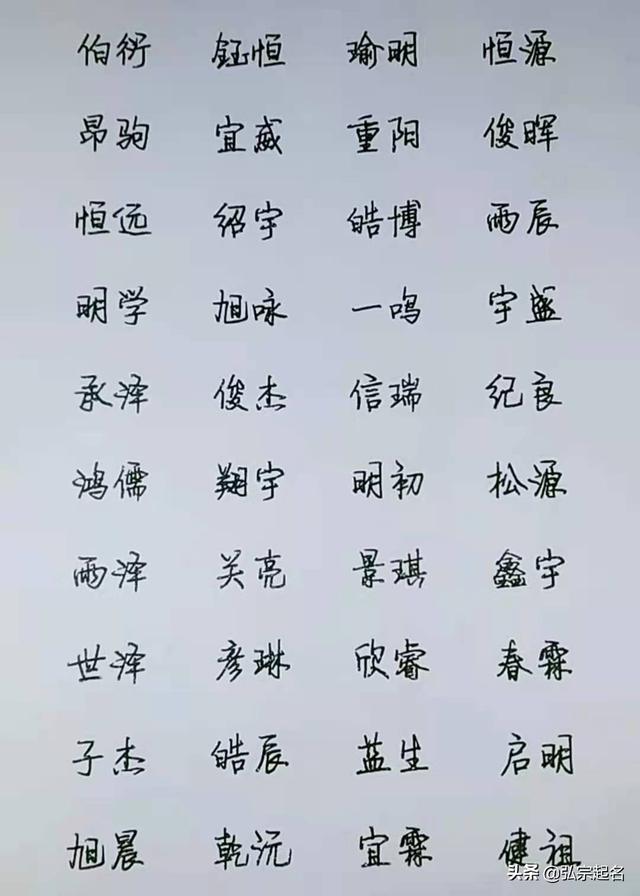 伯衍 钰恒 瑜明 恒源
昂驹 宜威 重阳 俊晖
恒远 绍宇 皓博 雨辰
明学 旭咏 一鸣 宇盛
承泽 俊杰 信瑞 纪良
鸿儒 翔宇 明初 松源
雨泽 关亮 景琪 鑫宇
世泽 彦琳 欣睿 春霖
子杰 皓辰 蓝生 启明
旭晨 乾沅 宜霖 健祖
头条 @弘宗起名